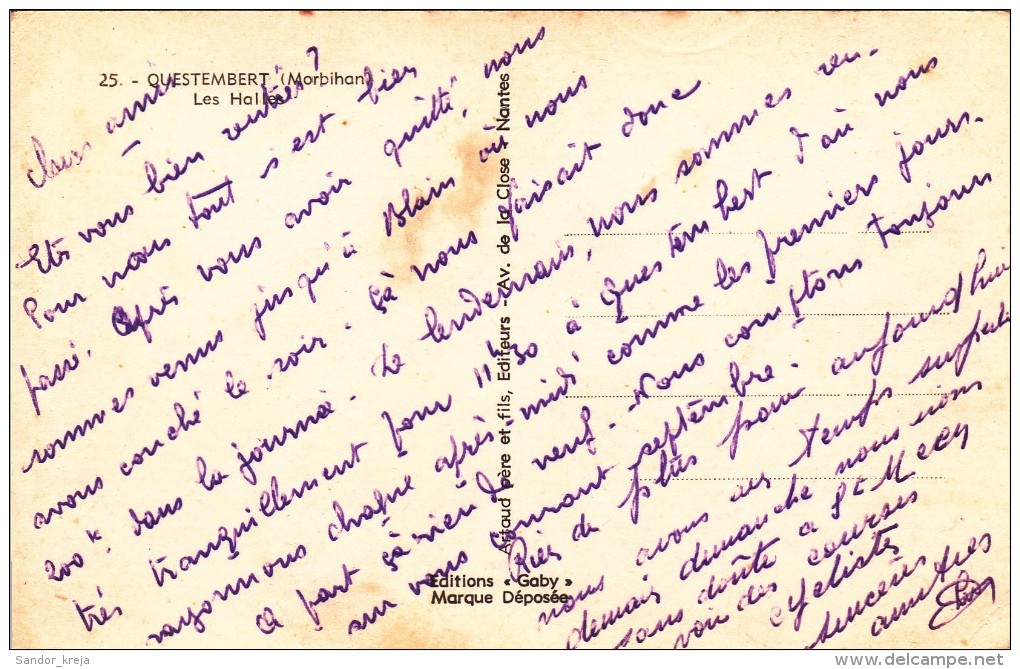 25. - QUESTEMBERT (Morbihan)
Les Halles
Chers amis
Etes vous bien rentrés?
Pour nous tout s'est bien
passé. Après vous avoir quitté, nous
sommes venus jusqu'à Blain où nous
avons couché le soir. çà nous faisait donc
200k dans la journée. Le lendemain, nous sommes ren-
trés tranquillement pour 11h30 à Questembert d'où nous
rayonnons chaque après-midi comme les premiers jours.
à part çà rien de neuf. Nous comptons toujours
sur vous courant septembre.
Rien de plus pour aujourd'hui
nous avons un temps superbe
demain dimanche nous irons
sans doute à St
voir des courses
cyclistes
sincères
amitiés
Artaud père et fils, Editeurs - Av. de la Close - Nantes
Editions « Gaby »
Marque Déposée
Sandor_kreja
delcampe.net